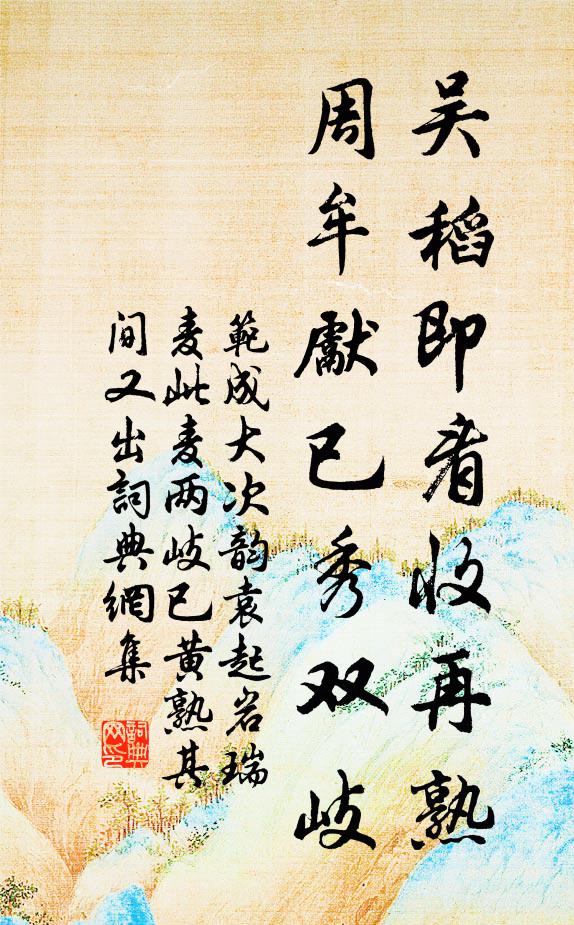 吴稻即看收再熟
周牟献已秀双岐
範成大次韵袁起岩瑞
麦此麦两岐已黄熟其
间又出詞典網集
詞典網印